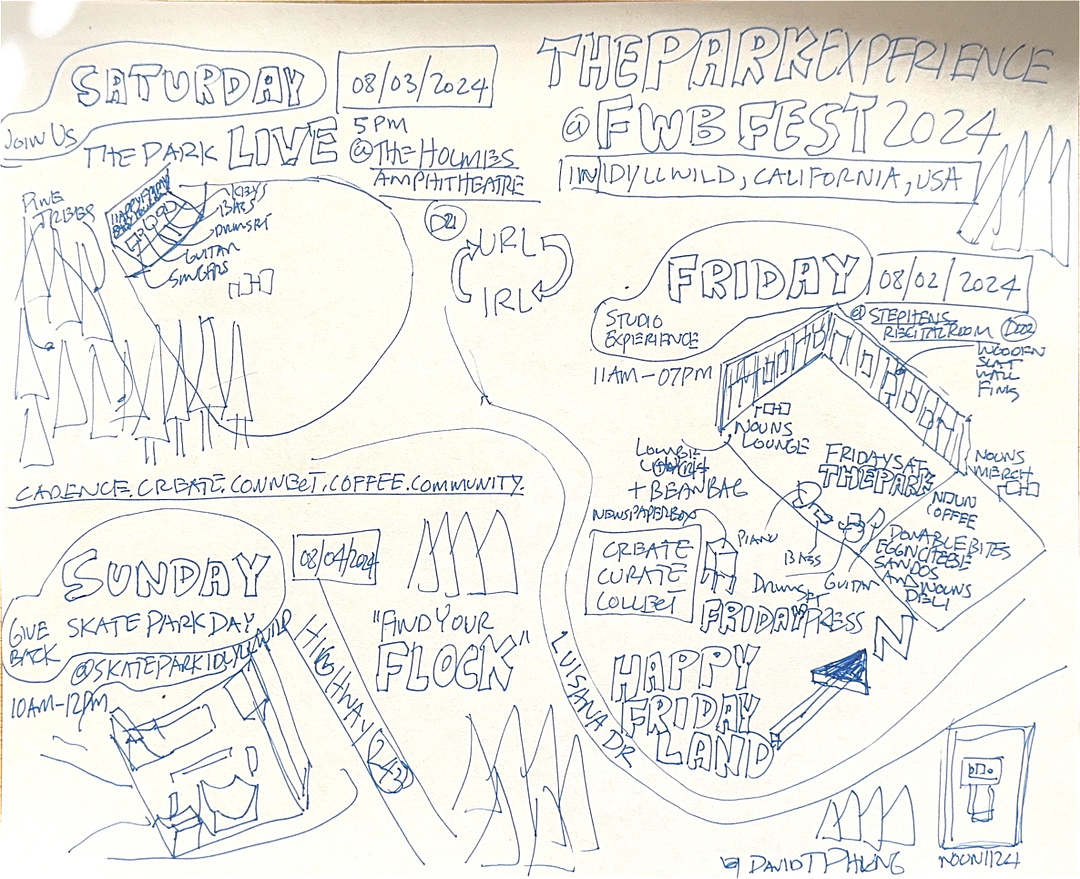 THE PARK EXPERIENCE
@ FWB FEST 2024
IN IDYLLWILD, CALIFORNIA, USA
SATURDAY
08/03/2024
JOIN US
THE PARK LIVE
5PM
@ THE HOLMES
AMPHITHEATRE
PINE
TREES
HAPPY FRIDAY
KEYS
BASS
DRUMSET
GUITAR
SINGERS
D21
URL
IRL
FRIDAY
08/02/2024
STUDIO
EXPERIENCE
11AM-07PM
@ STEPHENS
RECITAL ROOM
WOODEN
SLAT
WALL
FINS
NOUNS
LOUNGE
LOUNGE
+ BEANBAG
NEWSPAPERBOX
FRIDAYS AT
THEPARK
NOUNS
MERCH
NOUN
COFFEE
PIANO
BASS
DRUMSET
GUITAR
DONABLE BITES
EGGNCHEESE
SANDOS
AND NOUNS
DELI
CREATE
CURATE
COLLECT
FRIDAYPRESS
N
HAPPY
FRIDAY
LAND
LUISIANA DR
CADENCE.CREATE.CONNECT.COFFEE.COMMUNITY.
SUNDAY
08/04/2024
GIVE
BACK
SKATE PARK DAY
@SKATEPARKIDLYLLWILD
10AM-12PM
HIGHWAY 243
"FIND YOUR
FLOCK"
DAVIDTPHUNG
NOUN1124